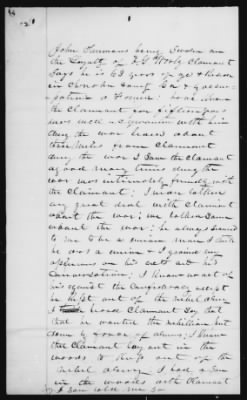 John Timmons being Sworn as
the Loyalty of F G Worly Claimant
Says he is 63 years of age & Reside
in Cherokee County Ga & Occu-
pation a Farmer: have known
the Claimant for fifteen years
was well acquainted with him
during the war lived about
three miles from Claimant
during the war I Saw the Claimant
a good many times during the
war was intimately friendly with
the Claimant; I have talked
any great deal with Claimant
about the war; we talked Some
about the war; he always seemed
to me to be a union man I think
he was a union & I ground my
opinions on his acts and his
Conversation; I know no act of
his against the Confederacy except
he kept out of the Rebel Army
I heard Claimant Say that
that he wanted the rebellion put
down & done of always; I know
the Claimant lay out in the
woods to keep out of the
Rebel Army I had a Son
in the woods with Claimant